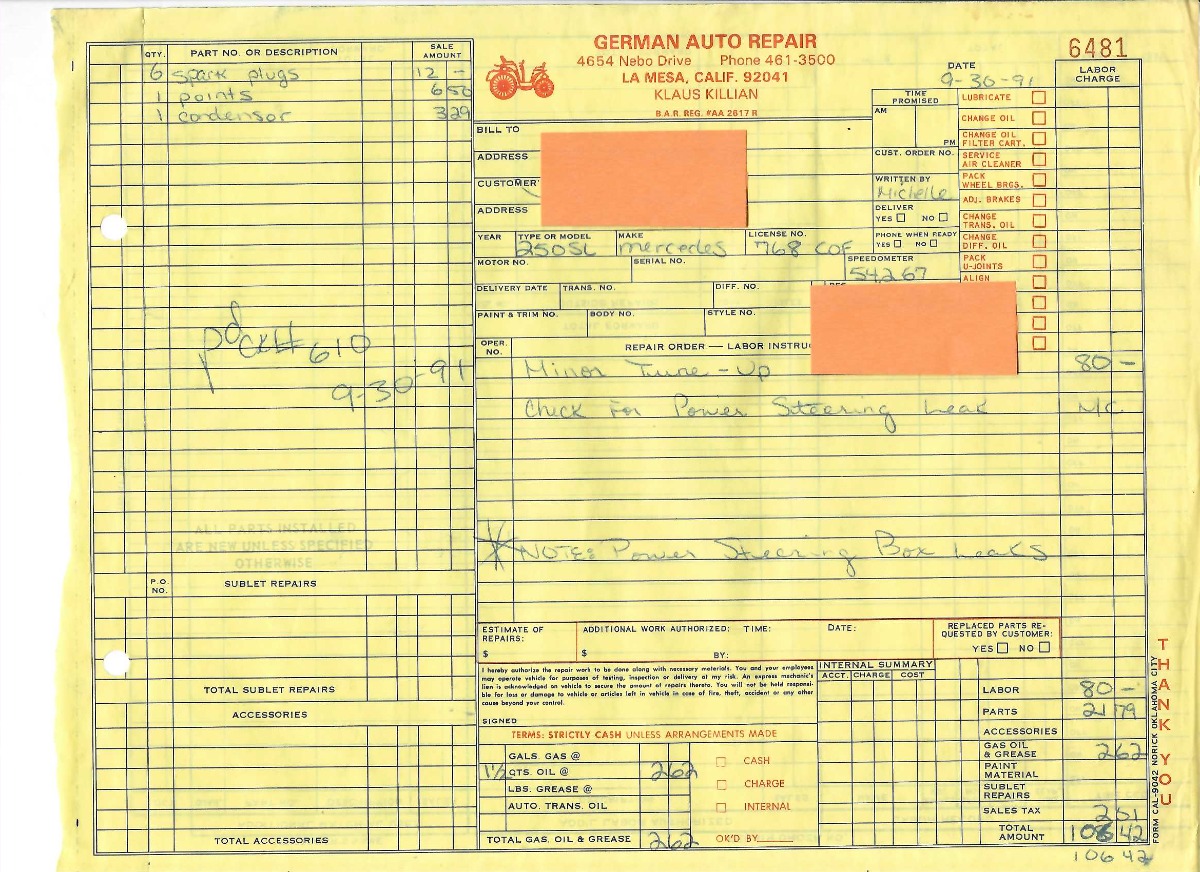 QTY. PART NO. OR DESCRIPTION SALE AMOUNT
6 spark plugs 12 -
1 points 650
1 condensor 329
pd CK# 610
9-30-91
ALL PARTS INSTALLED
ARE NEW UNLESS SPECIFIED
OTHERWISE
P.O. NO. SUBLET REPAIRS
TOTAL SUBLET REPAIRS
ACCESSORIES
TOTAL ACCESSORIES
GERMAN AUTO REPAIR
4654 Nebo Drive Phone 461-3500
LA MESA, CALIF. 92041
KLAUS KILLIAN
B.A.R. REG. #AA 2617 R
6481
DATE
9-30-91
LABOR CHARGE
BILL TO
ADDRESS
CUSTOMER'
ADDRESS
TIME PROMISED
AM
PM
CUST. ORDER NO.
WRITTEN BY
Michelle
DELIVER
YES NO
PHONE WHEN READY
YES NO
LUBRICATE
CHANGE OIL
CHANGE OIL FILTER CART.
SERVICE AIR CLEANER
PACK WHEEL BRGS.
ADJ. BRAKES
CHANGE TRANS. OIL
CHANGE DIFF. OIL
PACK U-JOINTS
ALIGN
YEAR TYPE OR MODEL MAKE LICENSE NO.
250SL mercedes 768 COF
MOTOR NO. SERIAL NO. SPEEDOMETER
54267
DELIVERY DATE TRANS. NO. DIFF. NO.
PAINT & TRIM NO. BODY NO. STYLE NO.
OPER. NO. REPAIR ORDER — LABOR INSTRU
Minor Tune-Up 80 -
Check For Power Steering Leak N/C
* NOTE: Power Steering Box Leaks
ESTIMATE OF REPAIRS: $
ADDITIONAL WORK AUTHORIZED: TIME: DATE:
$ BY:
REPLACED PARTS REQUESTED BY CUSTOMER:
YES NO
I hereby authorize the repair work to be done along with necessary materials. You and your employees
may operate vehicle for purposes of testing, inspection or delivery at my risk. An express mechanic's
lien is acknowledged on vehicle to secure the amount of repairs thereto. You will not be held responsi-
ble for loss or damage to vehicle or articles left in vehicle in case of fire, theft, accident or any other
cause beyond your control.
SIGNED
TERMS: STRICTLY CASH UNLESS ARRANGEMENTS MADE
GALS. GAS @
1½ QTS. OIL @ 262
LBS. GREASE @
AUTO. TRANS. OIL
TOTAL GAS, OIL & GREASE 262
CASH
CHARGE
INTERNAL
OK'D BY
INTERNAL SUMMARY
ACCT. CHARGE COST
LABOR 80 -
PARTS 21 79
ACCESSORIES
GAS OIL & GREASE 262
PAINT MATERIAL
SUBLET REPAIRS
SALES TAX 201
TOTAL AMOUNT 106 42
106 42
FORM CAL-9042 NORICK OKLAHOMA CITY
THANK YOU